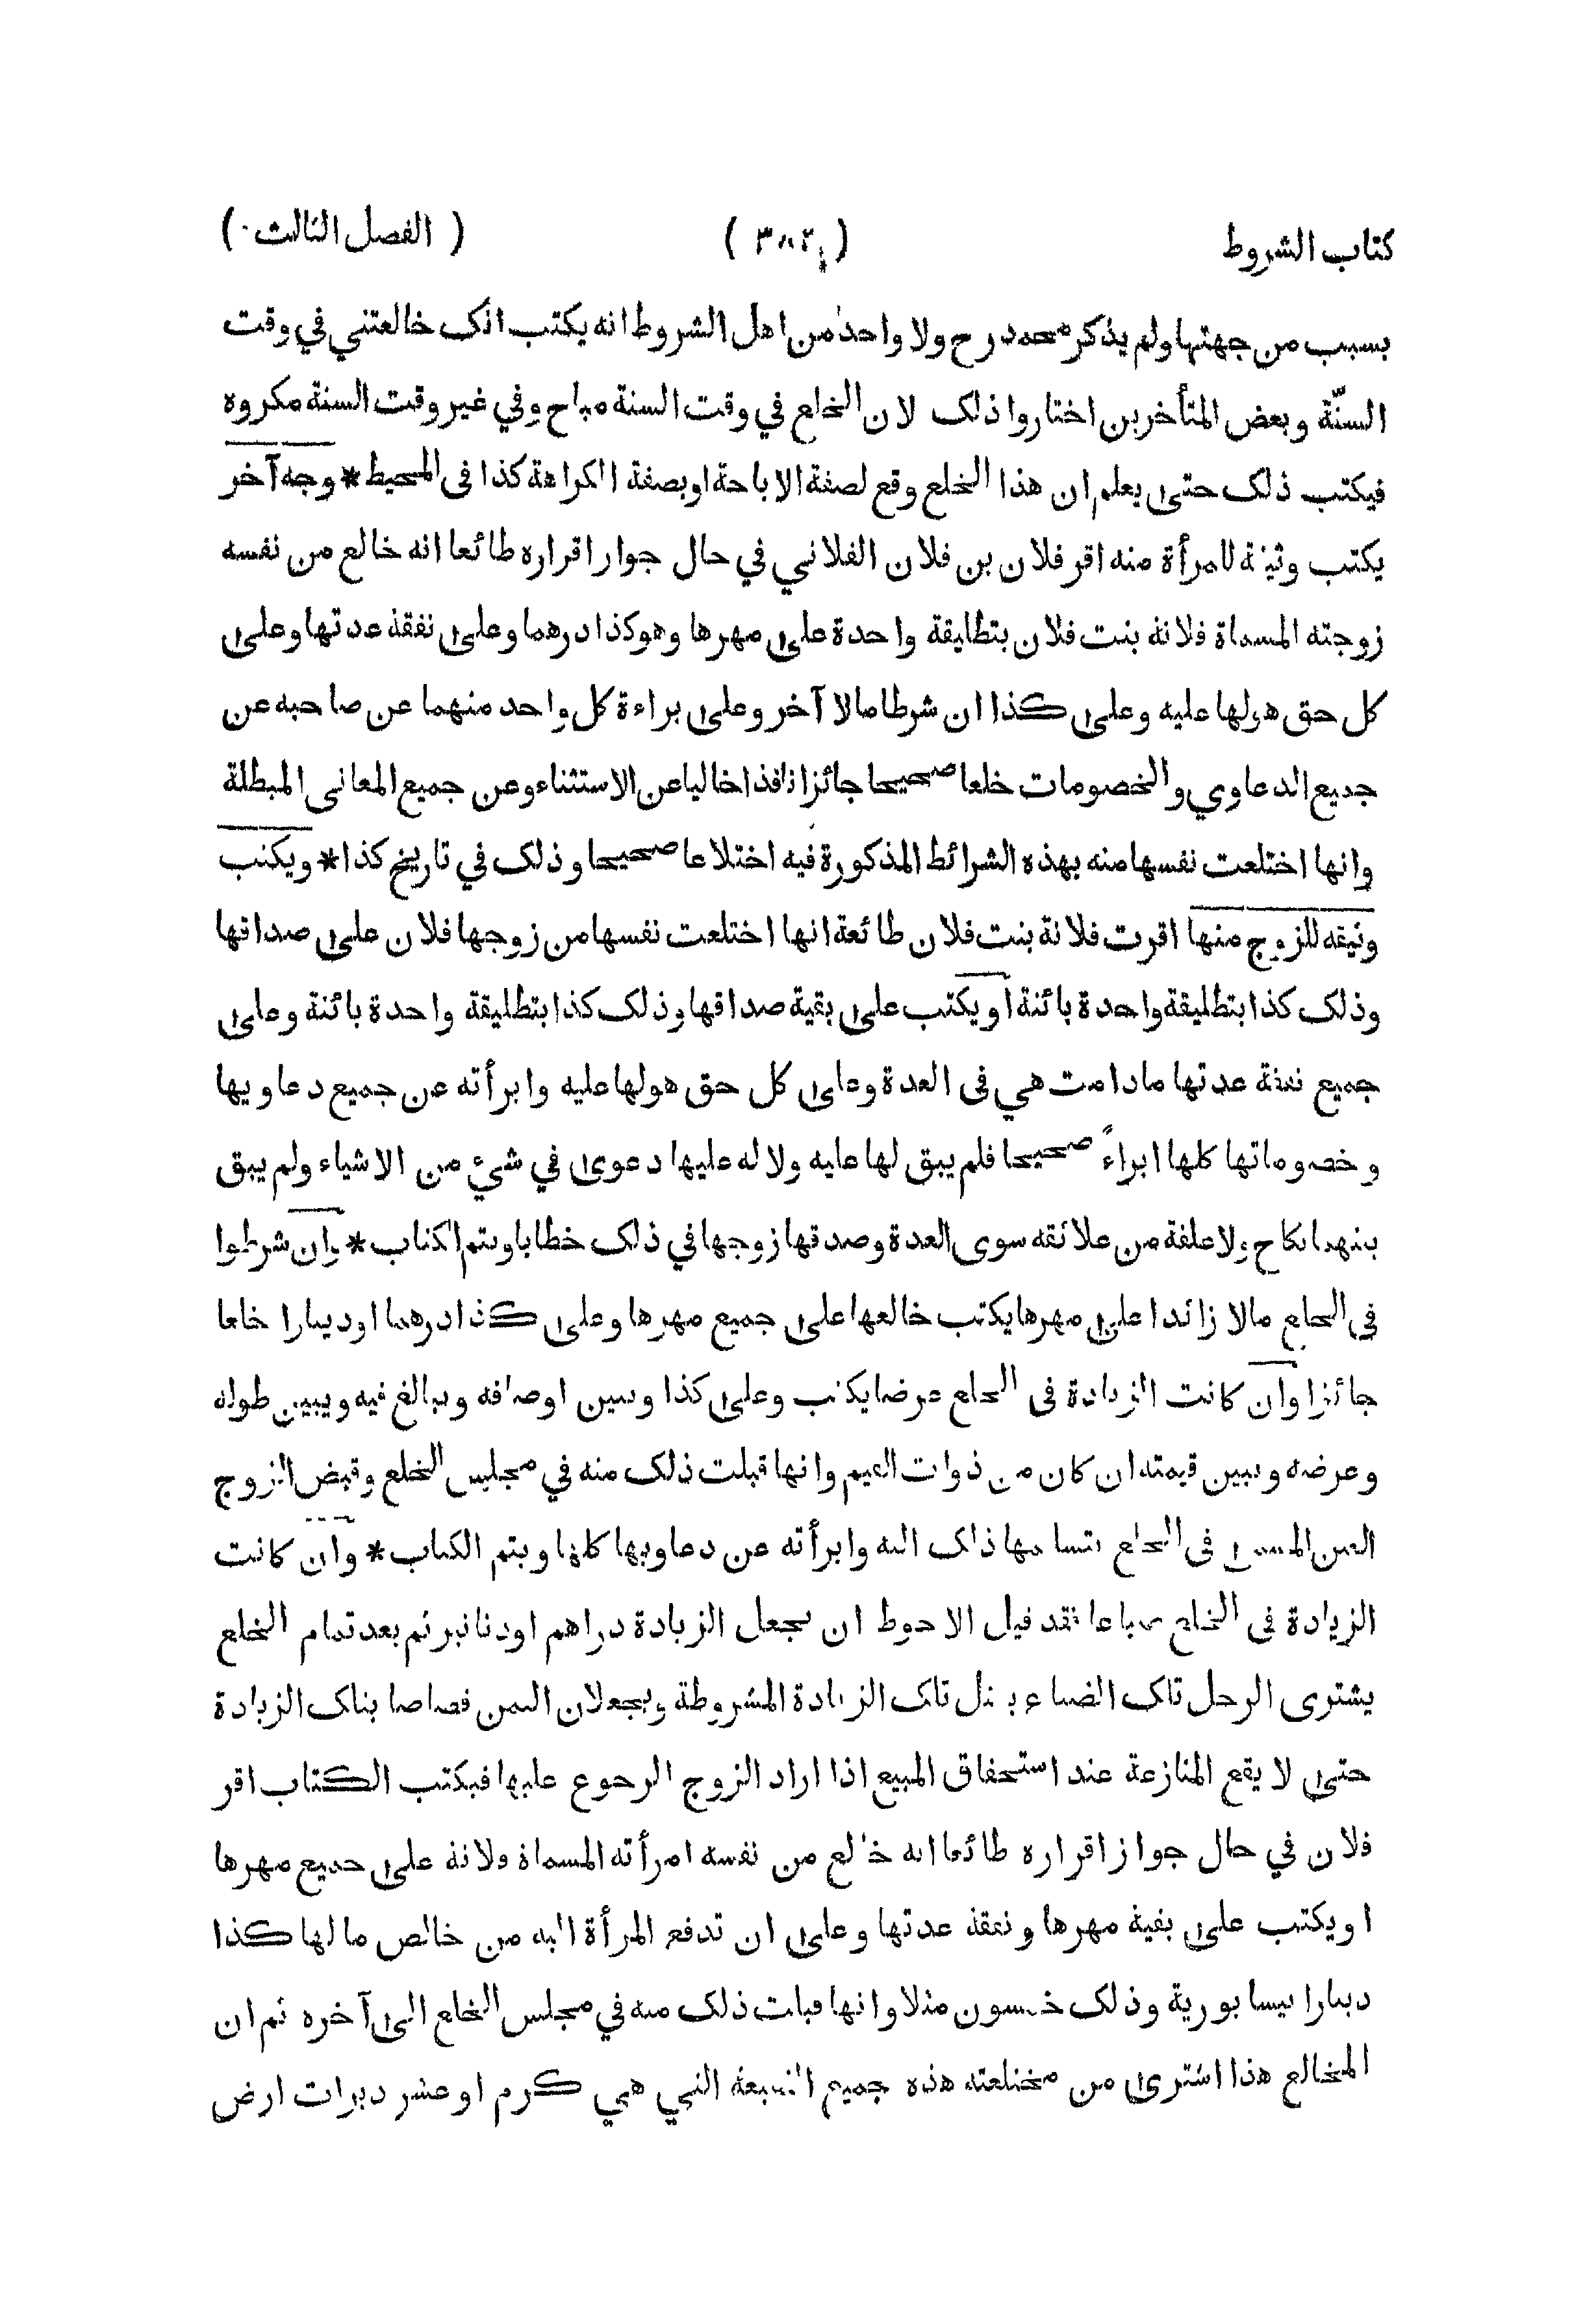 كتاب الشروط (٣٨٢) (الفصل الثالث)
بسبب من جهتها ولم يذكر محمد رح ولا واحد من اهل الشروط انه يكتب انك خالعتني في وقت
السنّة وبعض المتأخرين اختاروا ذلك لان الخلع في وقت السنة مباح وفي غير وقت السنة مكروه
فيكتب ذلك حتى يعلم ان هذا الخلع وقع لصفة الاباحة او بصفة الكراهة كذا في المحيط * وجه آخر
يكتب وثيقة للمرأة منه اقر فلان بن فلان الفلاني في حال جواز اقراره طائعا انه خالع من نفسه
زوجته المسماة فلانة بنت فلان بتطليقة واحدة على مهرها وهو كذا درهما وعلى نفقة عدتها وعلى
كل حق هو لها عليه وعلى كذا ان شرطا مالا آخر وعلى براءة كل واحد منهما عن صاحبه عن
جميع الدعاوي والخصومات خلعا صحيحا جائزا نافذا خاليا عن الاستثناء وعن جميع المعاني المبطلة
وانها اختلعت نفسها منه بهذه الشرائط المذكورة فيه اختلاعا صحيحا وذلك في تاريخ كذا * ويكتب
وثيقه للزوج منها اقرت فلانة بنت فلان طائعة انها اختلعت نفسها من زوجها فلان على صداقها
وذلك كذا بتطليقة واحدة بائنة او يكتب على بقية صداقها وذلك كذا بتطليقة واحدة بائنة وعلى
جميع نفقة عدتها مادامت هي في العدة وعلى كل حق هو لها عليه وابرأته عن جميع دعاويها
وخصوماتها كلها ابراءً صحيحا فلم يبق لها عليه ولا له عليها دعوى في شيء من الاشياء ولم يبق
بينهما نكاح ولا علقة من علائقه سوى العدة وصدقها زوجها في ذلك خطابا ويتم الكتاب * وان شرطوا
في الخلع مالا زائدا على مهرها يكتب خالعها على جميع مهرها وعلى كذا درهما او دينارا خلعا
جائزا وان كانت الزيادة في الخلع عرضا يكتب وعلى كذا ويبين اوصافه ويبالغ فيه ويبين طوله
وعرضه ويبين قيمته ان كان من ذوات القيم وانها قبلت ذلك منه في مجلس الخلع وقبض الزوج
العين في الخلع ذلك اليه وابرأته عن دعاويها كلها ويتم الكتاب * وان كانت
الزيادة في الخلع ضياعا فقد قيل الاحوط ان يجعل الزيادة دراهم او دنانير ثم بعد تمام الخلع
يشترى الرجل تلك الضياع بمثل تلك الزيادة المشروطة ويجعلان الثمن قصاصا بتلك الزيادة
حتى لا يقع المنازعة عند استحقاق المبيع اذا اراد الزوج الرجوع عليها فيكتب الكتاب اقر
فلان في حال جواز اقراره طائعا انه خالع من نفسه امرأته المسماة فلانة على جميع مهرها
او يكتب على بقية مهرها ونفقة عدتها وعلى ان تدفع المرأة اليه من خالص مالها كذا
دينارا نيسابورية وذلك خمسون مثلا وانها قبلت ذلك منه في مجلس الخلع الى آخره ثم ان
المخالع هذا اشترى من مختلعته هذه جميع الضيعة التي هي كرم او عشر دبرات ارض